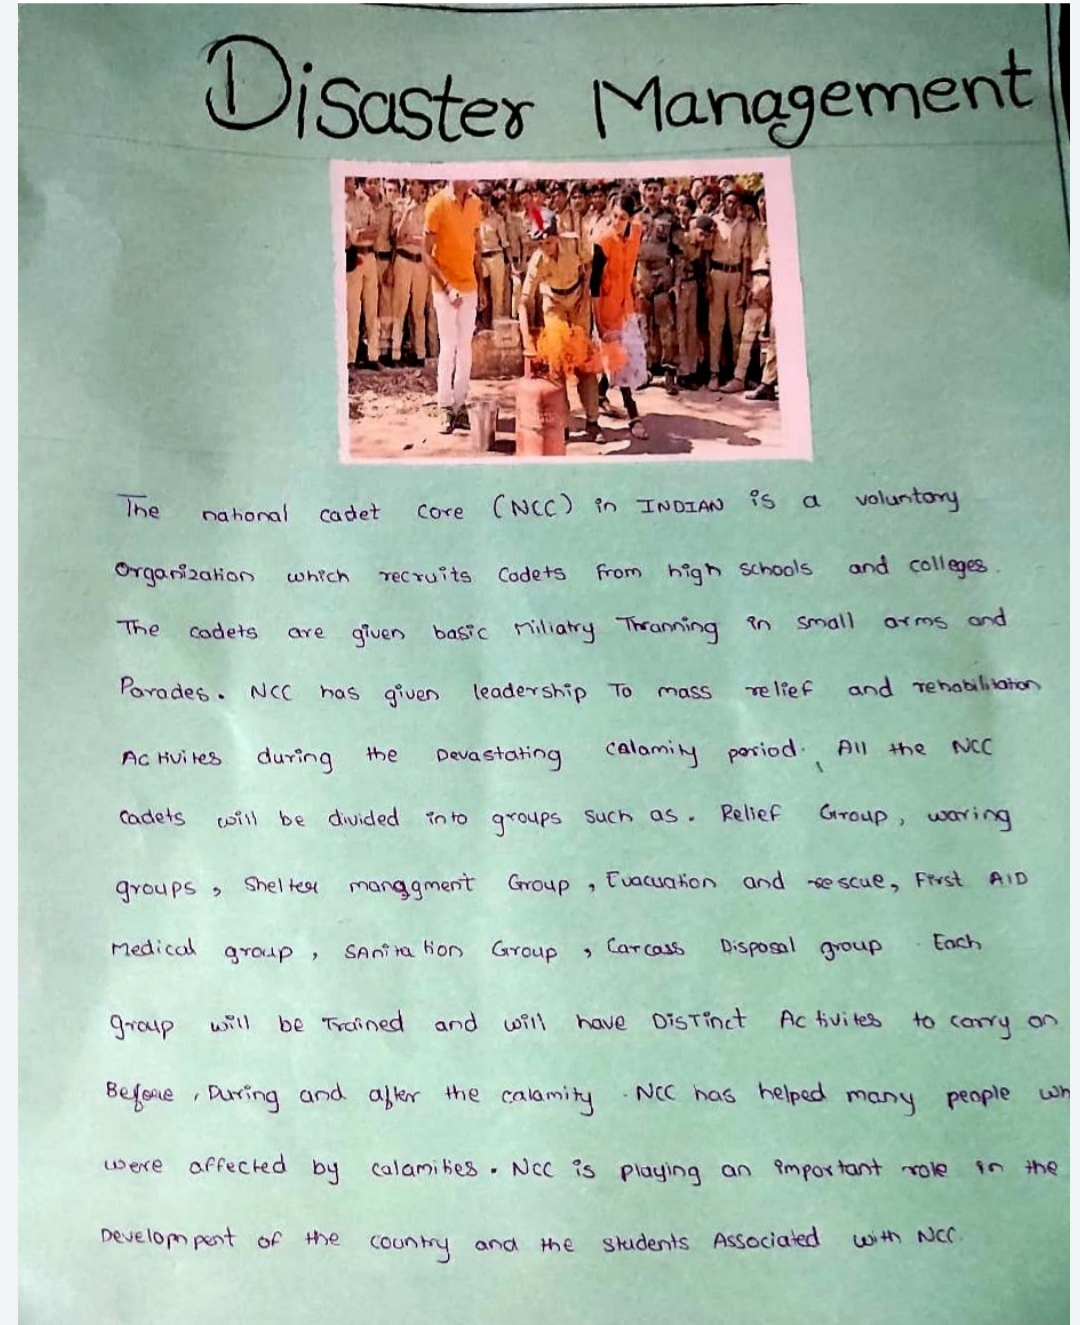 Disaster Management
The national cadet core (NCC) in INDIAN is a voluntary
organization which recruits cadets from high schools and colleges.
The cadets are given basic miliatry Thranning in small arms and
Parades. NCC has given leadership To mass relief and rehabilitation
Activites during the Devastating calamity period. All the NCC
cadets will be divided into groups such as. Relief Group, waring
groups, Shelter manggment Group, Evacuation and rescue, First AID
Medical group, SAnitation Group, Carcass Disposal group. Each
group will be Trained and will have DisTinct Activites to carry on
Before, During and after the calamity. NCC has helped many people wh
were affected by calamities. NCC is playing an important role in the
Developmpent of the country and the students Associated with NCC.